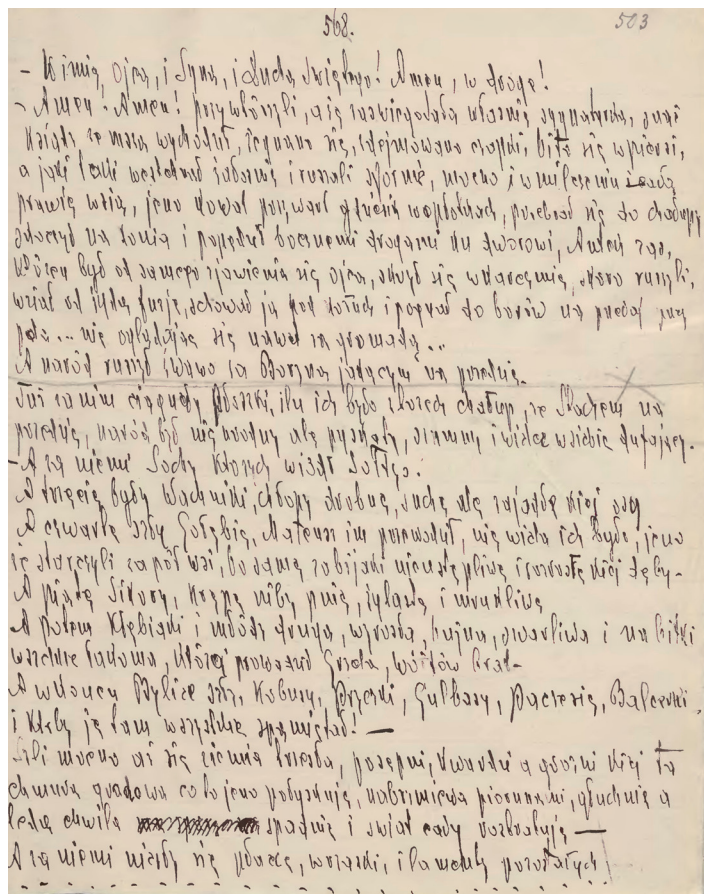 568.
503
– W imię, Ojca, i Syna, i Ducha Świętego! Amen, w drogę!
– Amen. Amen! powtórzyli, a iż zaświegotała właśnie sygnaturka, znać
ksiądz ze mszą wychodził, żegnano się, zdejmowano czapki, bito się w piersi,
a jaki taki westchnął żałośnie i ruszali sfornie, mocno i w milczeniu całą
prawie wsią, jeno kowal przywarł gdzieś w opłotkach, przebrał się do chałupy
skoczył na konia i popędził bocznemi drogami ku dworowi, Antek zaś,
który był od samego zjawienia się ojca, skrył się w karczmie, skoro ruszyli,
wziął od Żyda fuzję, schował ją pod kożuch i pognał do borów na przełaj przez
pola... nie oglądając się nawet na gromadę...
A naród ruszył żwawo za Boryną jadącym na przedzie.
Tuż za nim ciągnęły Płoszki, ilu ich było z trzech chałup, ze Stachem na
przedzie, naród był nie urodny ale pyskaty, szumny i wielce w siebie dufający.
– A za niemi Sochy których wiódł sołtys.
A trzecie były Wachniki, chłopy drobne, suche ale zajadłe kiej osy
A czwarte szły Gołębie, Mateusz im przewodził, nie wiela ich było, jeno
iż starczyli za pół wsi, bo same zabijaki nieustępliwe i rozrosłe kiej dęby.
A piąte Sikory, krępe niby pnie, żylaste i mrukliwe
A potem Kłębiaki i młódź druga, wyrosła, bujna, swarliwa i na bitki
wiecznie łakoma, której prowadził Grzela, wójtów brat.
A w końcu Bylice szły, Kobusy, Pryczki, Gulbasy, Paciesie, Balcerki,
i kto by je tam wszystkie spamiętał! —
Szli mocno aż się ziemia trzęsła, posępni, hardzi a groźni kiej ta
chmura gradowa co to jeno połyskuje, nabrzmiewa piorunami, głuchnie a
leda chwila spadnie i świat cały roztratuje —
A za niemi niesły się płacze, wrzaski, i lamenty pozostałych